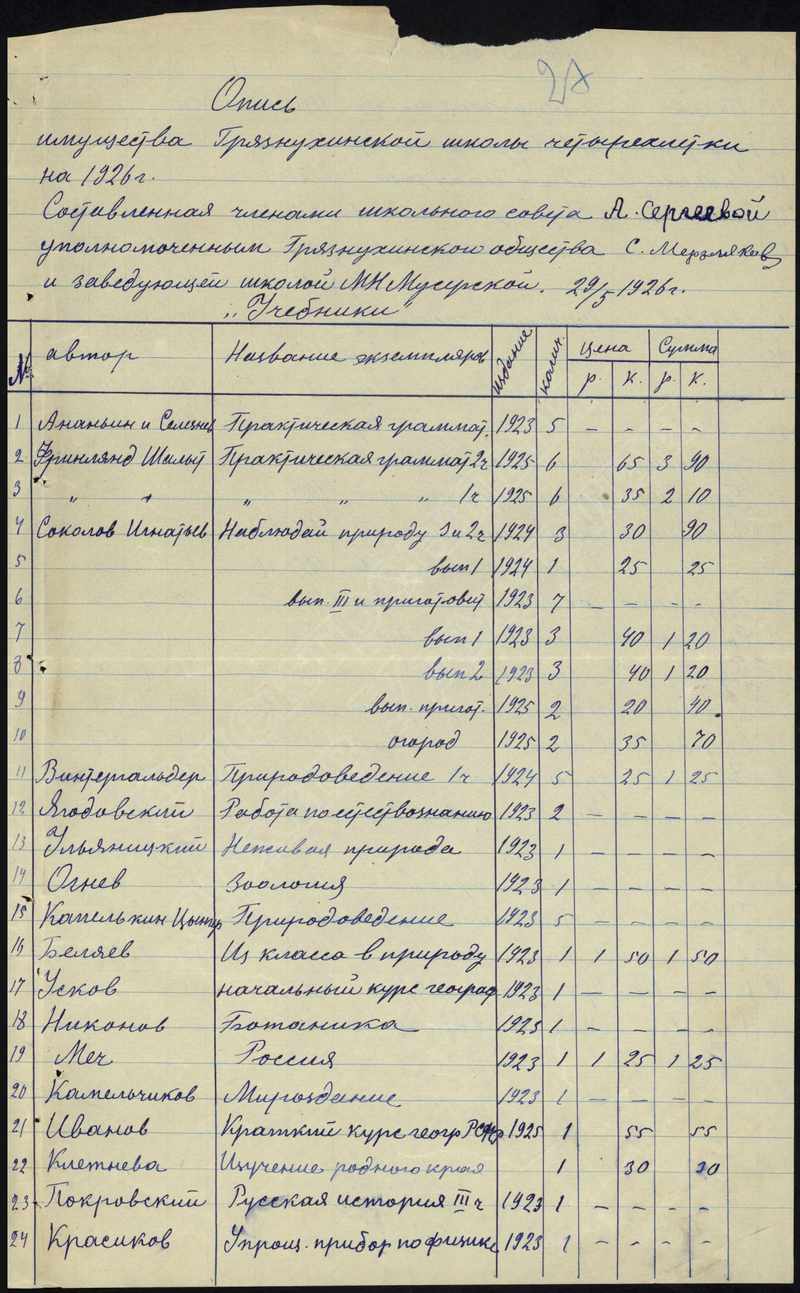 27
Опись
имущества Грязнухинской школы четырехлетки
на 1926 г.
Составленная членами школьного совета А. Сергеевой
уполномоченным Грязнухинского общества С. Мерзляков
и заведующей школой МН Мусерской. 29/5 1926 г.
„Учебники"
№ автор Название экземпляров издание колич. Цена Сумма
р. к. р. к.
1 Ананьин и Селезнев Практическая граммат. 1923 5 – – – –
2 Гринлянд Шалыт Практическая граммат 2ч 1925 6 65 3 90
3 „ „ „ „ „ 1ч 1925 6 35 2 10
4 Соколов Игнатьев Наблюдай природу 1 и 2ч 1924 3 30 90
5 вып 1 1924 1 25 25
6 вып. III и приготовит 1923 7 – – – –
7 вып 1 1923 3 40 1 20
8 вып 2 1923 3 40 1 20
9 вып. пригот. 1925 2 20 40
10 огород 1925 2 35 70
11 Винтергальдер Природоведение 1ч 1924 5 25 1 25
12 Ягодовский Работа по естествознанию 1923 2 – – – –
13 Ульяницкий Неживая природа 1923 1 – – – –
14 Огнев Зоология 1923 1 – – – –
15 Капелькин Цингер Природоведение 1923 5 – – – –
16 Беляев Из класса в природу 1923 1 1 50 1 50
17 Усков начальный курс географ 1923 1 – – – –
18 Никонов Ботаника 1923 1 – – – –
19 Меч Россия 1923 1 1 25 1 25
20 Камельчиков Мироздание 1923 1 – – – –
21 Иванов Краткий курс геогр РСФСР 1925 1 55 55
22 Клетнева Изучение родного края 1 30 30
23 Покровский Русская история III ч 1923 1 – – – –
24 Красиков Упрощ. прибор по физике 1923 1 – – – –